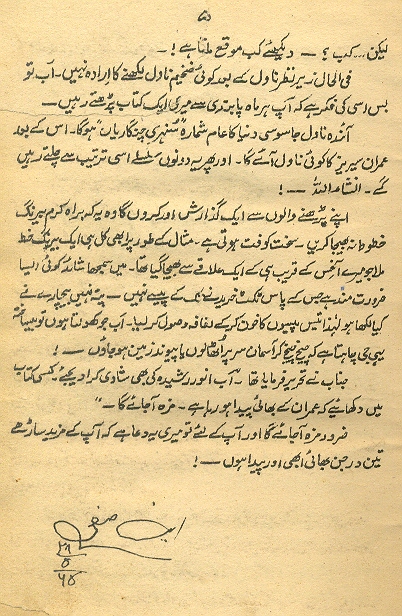 ۵
لیکن... کب؟ — دیکھئے کب موقع ملتا ہے!۔
فی الحال زیر نظر ناول کے بعد کوئی ضخیم ناول لکھنے کا ارادہ نہیں۔ آپ تو
بس اسی کی فکر ہے کہ آپ ہر ماہ پابندی سے میری ایک کتاب پڑھتے رہیں —
آئندہ ناول جاسوسی دنیا کا عام شمارہ "سنہری چنگاریاں" ہوگا۔ اس کے بعد
عمران سیریز کا کوئی ناول آئے گا۔ اور پھر یہ دونوں سلسلے اسی ترتیب سے چلتے رہیں
گے۔ انشاء اللہ — !
اپنے پڑھنے والوں سے ایک گذارش اور کروں گا وہ یہ کہ براہ کرم بیرنگ
خطوط نہ بھیجا کریں۔ سخت کوفت ہوتی ہے۔ مثال کے طور پر ابھی کل ہی ایک بیرنگ خط
ملا جو میرے آفس کے قریب ہی کے ایک علاقے سے بھیجا گیا تھا۔ میں سمجھا شائد کوئی ایسا
ضرورت مند ہے جس کے پاس ٹکٹ خریدنے تک کے پیسے نہیں — پتہ نہیں بیچارے نے
کیا لکھا ہو لہٰذا تیس پیسوں کا خون کر کے لفافہ وصول کر لیا۔ آپ جو کھولتا ہوں تو بیساختہ
یہی جی چاہتا ہے کہ چیخ چیخ کر آسمان سر پر اٹھالوں یا پیوند زمین ہو جاؤں — !
جناب نے تحریر فرمایا تھا "آپ انور رشیدہ کی بھی شادی کرا دیجئے۔ کسی کتاب
میں دکھائیے کہ عمران کے بھائی پیدا ہو رہا ہے۔ مزہ آجائے گا۔"
ضرور مزہ آجائے گا اور آپ کے لئے تو میری یہ دعا ہے کہ آپ کے مزید ساڑھے
تین درجن بھائی ابھی اور پیدا ہوں — !
ابن صفی
۵
۶۵